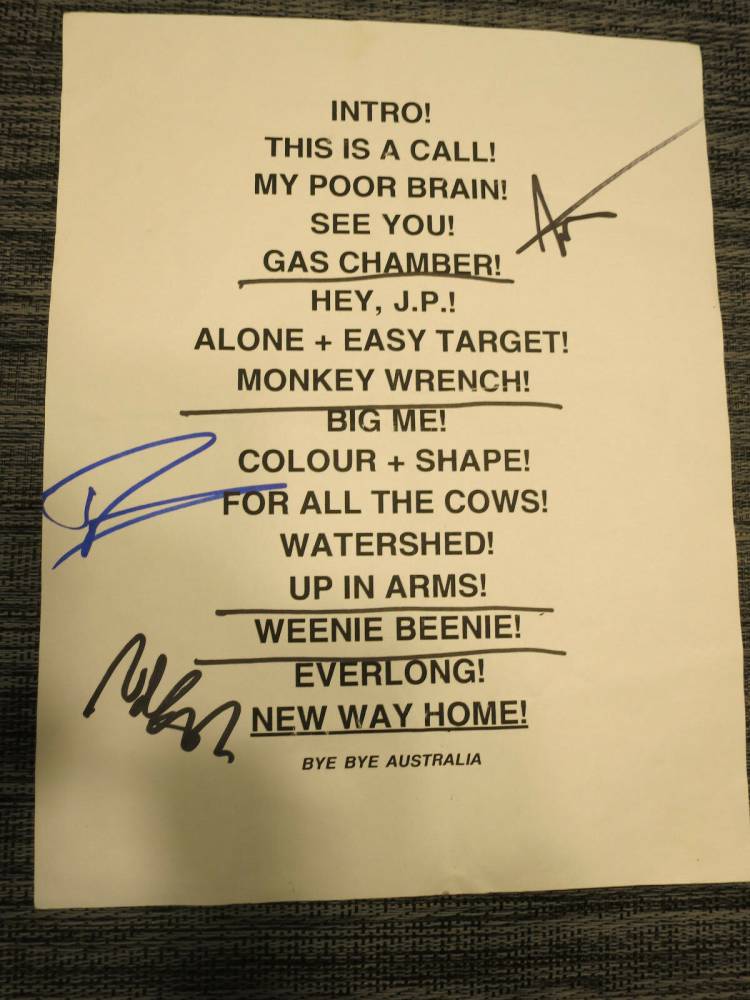 INTRO!
THIS IS A CALL!
MY POOR BRAIN!
SEE YOU!
GAS CHAMBER!
HEY, J.P.!
ALONE + EASY TARGET!
MONKEY WRENCH!
BIG ME!
COLOUR + SHAPE!
FOR ALL THE COWS!
WATERSHED!
UP IN ARMS!
WEENIE BEENIE!
EVERLONG!
NEW WAY HOME!
BYE BYE AUSTRALIA